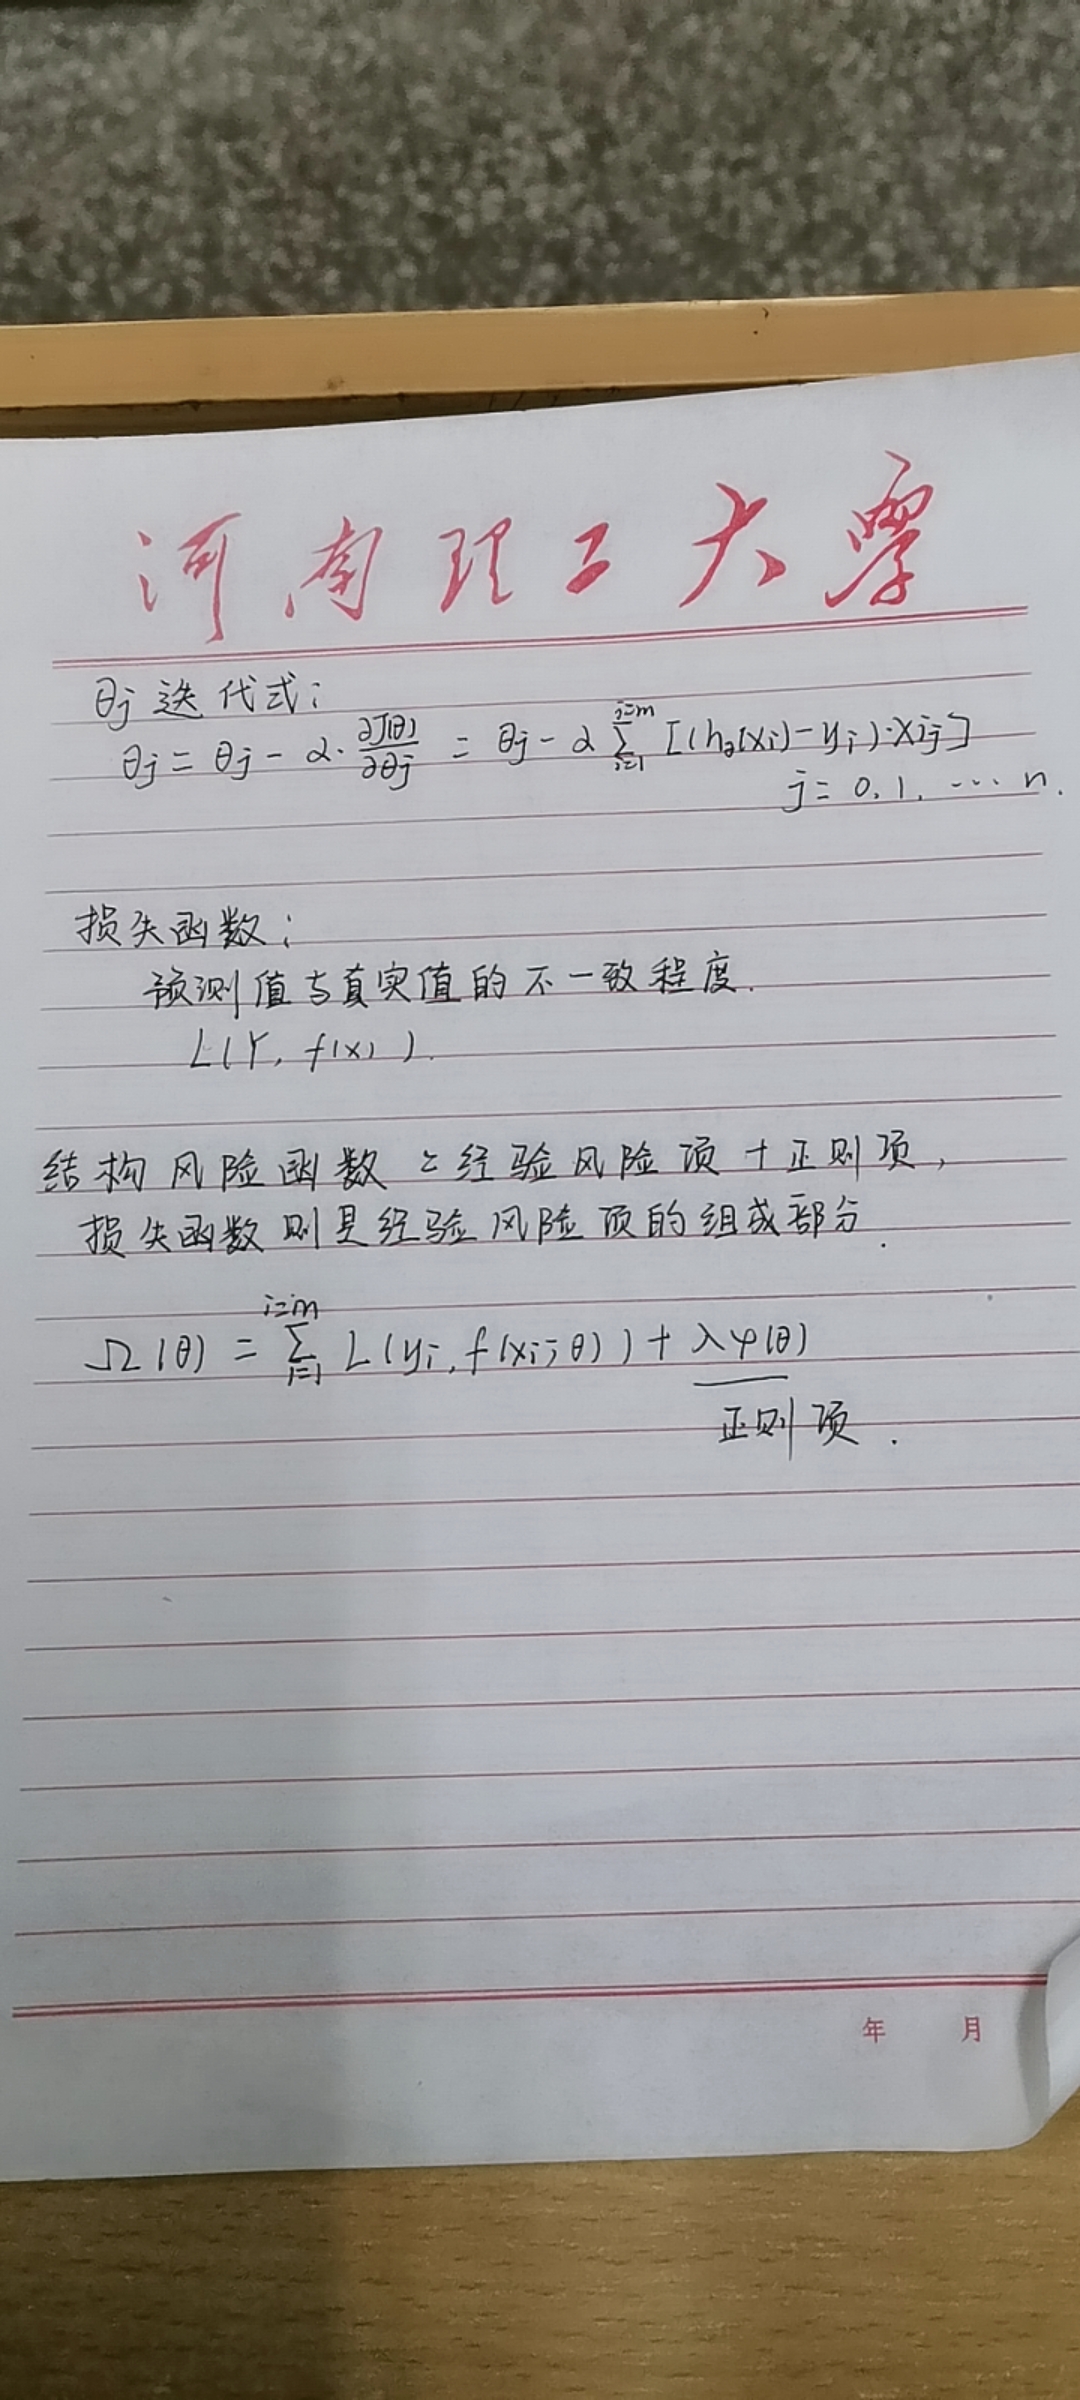 河南理工大學
θj 迭代式:
θj = θj - α· ∂J(θ)/∂θj = θj - α ∑_{i=1}^{i=m} [(hθ(xi) - yi)·xij]
j = 0, 1, … n.
损失函数:
预测值与真实值的不一致程度.
L(Y, f(x)).
结构风险函数 = 经验风险项 + 正则项,
损失函数则是经验风险项的组成部分.
Ω(θ) = ∑_{i=1}^{i=m} L(yi, f(xi; θ)) + λφ(θ)
正则项.
年 月